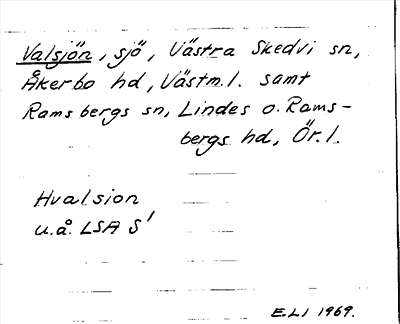 Valsjön, sjö, Västra Skedvi sn,
Åkerbo hd, Västm.l. samt
Ramsbergs sn, Lindes o. Rams-
bergs hd, Ör.l.
Hvalsion
u.å. LSA S'
E.L. 1969.